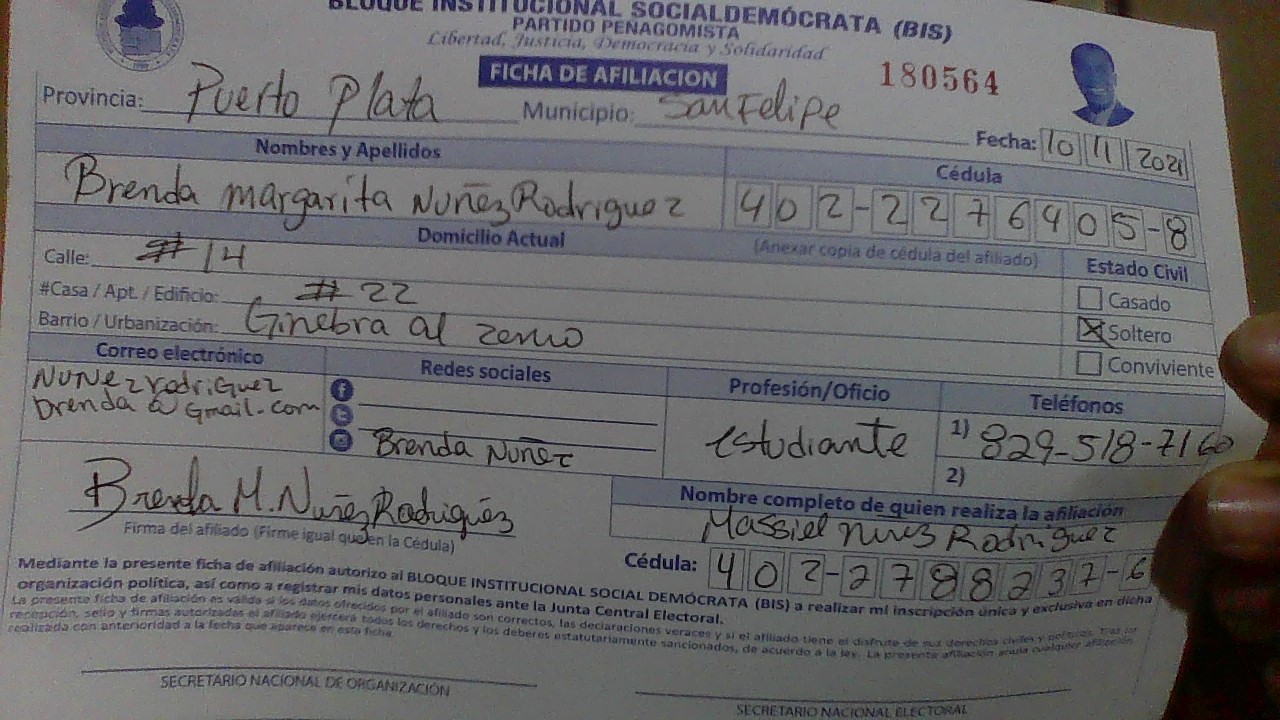 BLOQUE INSTITUCIONAL SOCIALDEMÓCRATA (BIS)
PARTIDO PENAGOMISTA
Libertad, Justicia, Democracia y Solidaridad
FICHA DE AFILIACION
180564
Provincia: Puerto Plata Municipio: San Felipe
Fecha: 10 11 2021
Nombres y Apellidos Cédula
Brenda margarita Nuñez Rodriguez 402-2276405-8
Domicilio Actual (Anexar copia de cédula del afiliado) Estado Civil
Calle: #14
Casado
#Casa / Apt. / Edificio: #22
Soltero
Barrio / Urbanización: Ginebra al
Conviviente
Correo electrónico Redes sociales Profesión/Oficio Teléfonos
NUNEzrodriguez
brenda@gmail.com
Brenda Nuñez
estudiante
1) 829-518-7160
2)
Brenda M. Nuñez Rodriguez
Firma del afiliado (Firme igual que en la Cédula)
Nombre completo de quien realiza la afiliación
Massiel Nuñez Rodriguez
Cédula: 402-2788237-6
Mediante la presente ficha de afiliación autorizo al BLOQUE INSTITUCIONAL SOCIAL DEMÓCRATA (BIS) a realizar mi inscripción única y exclusiva en dicha
organización política, así como a registrar mis datos personales ante la Junta Central Electoral.
La presente ficha de afiliación es válida si los datos ofrecidos por el afiliado son correctos, las declaraciones veraces y si el afiliado tiene el disfrute de sus derechos civiles y políticos. Tras su
recepción, sello y firmas autorizadas el afiliado ejercerá todos los derechos y los deberes estatutariamente sancionados, de acuerdo a la ley. La presente afiliación anula cualquier afiliación
realizada con anterioridad a la fecha que aparece en esta ficha.
SECRETARIO NACIONAL DE ORGANIZACIÓN
SECRETARIO NACIONAL ELECTORAL